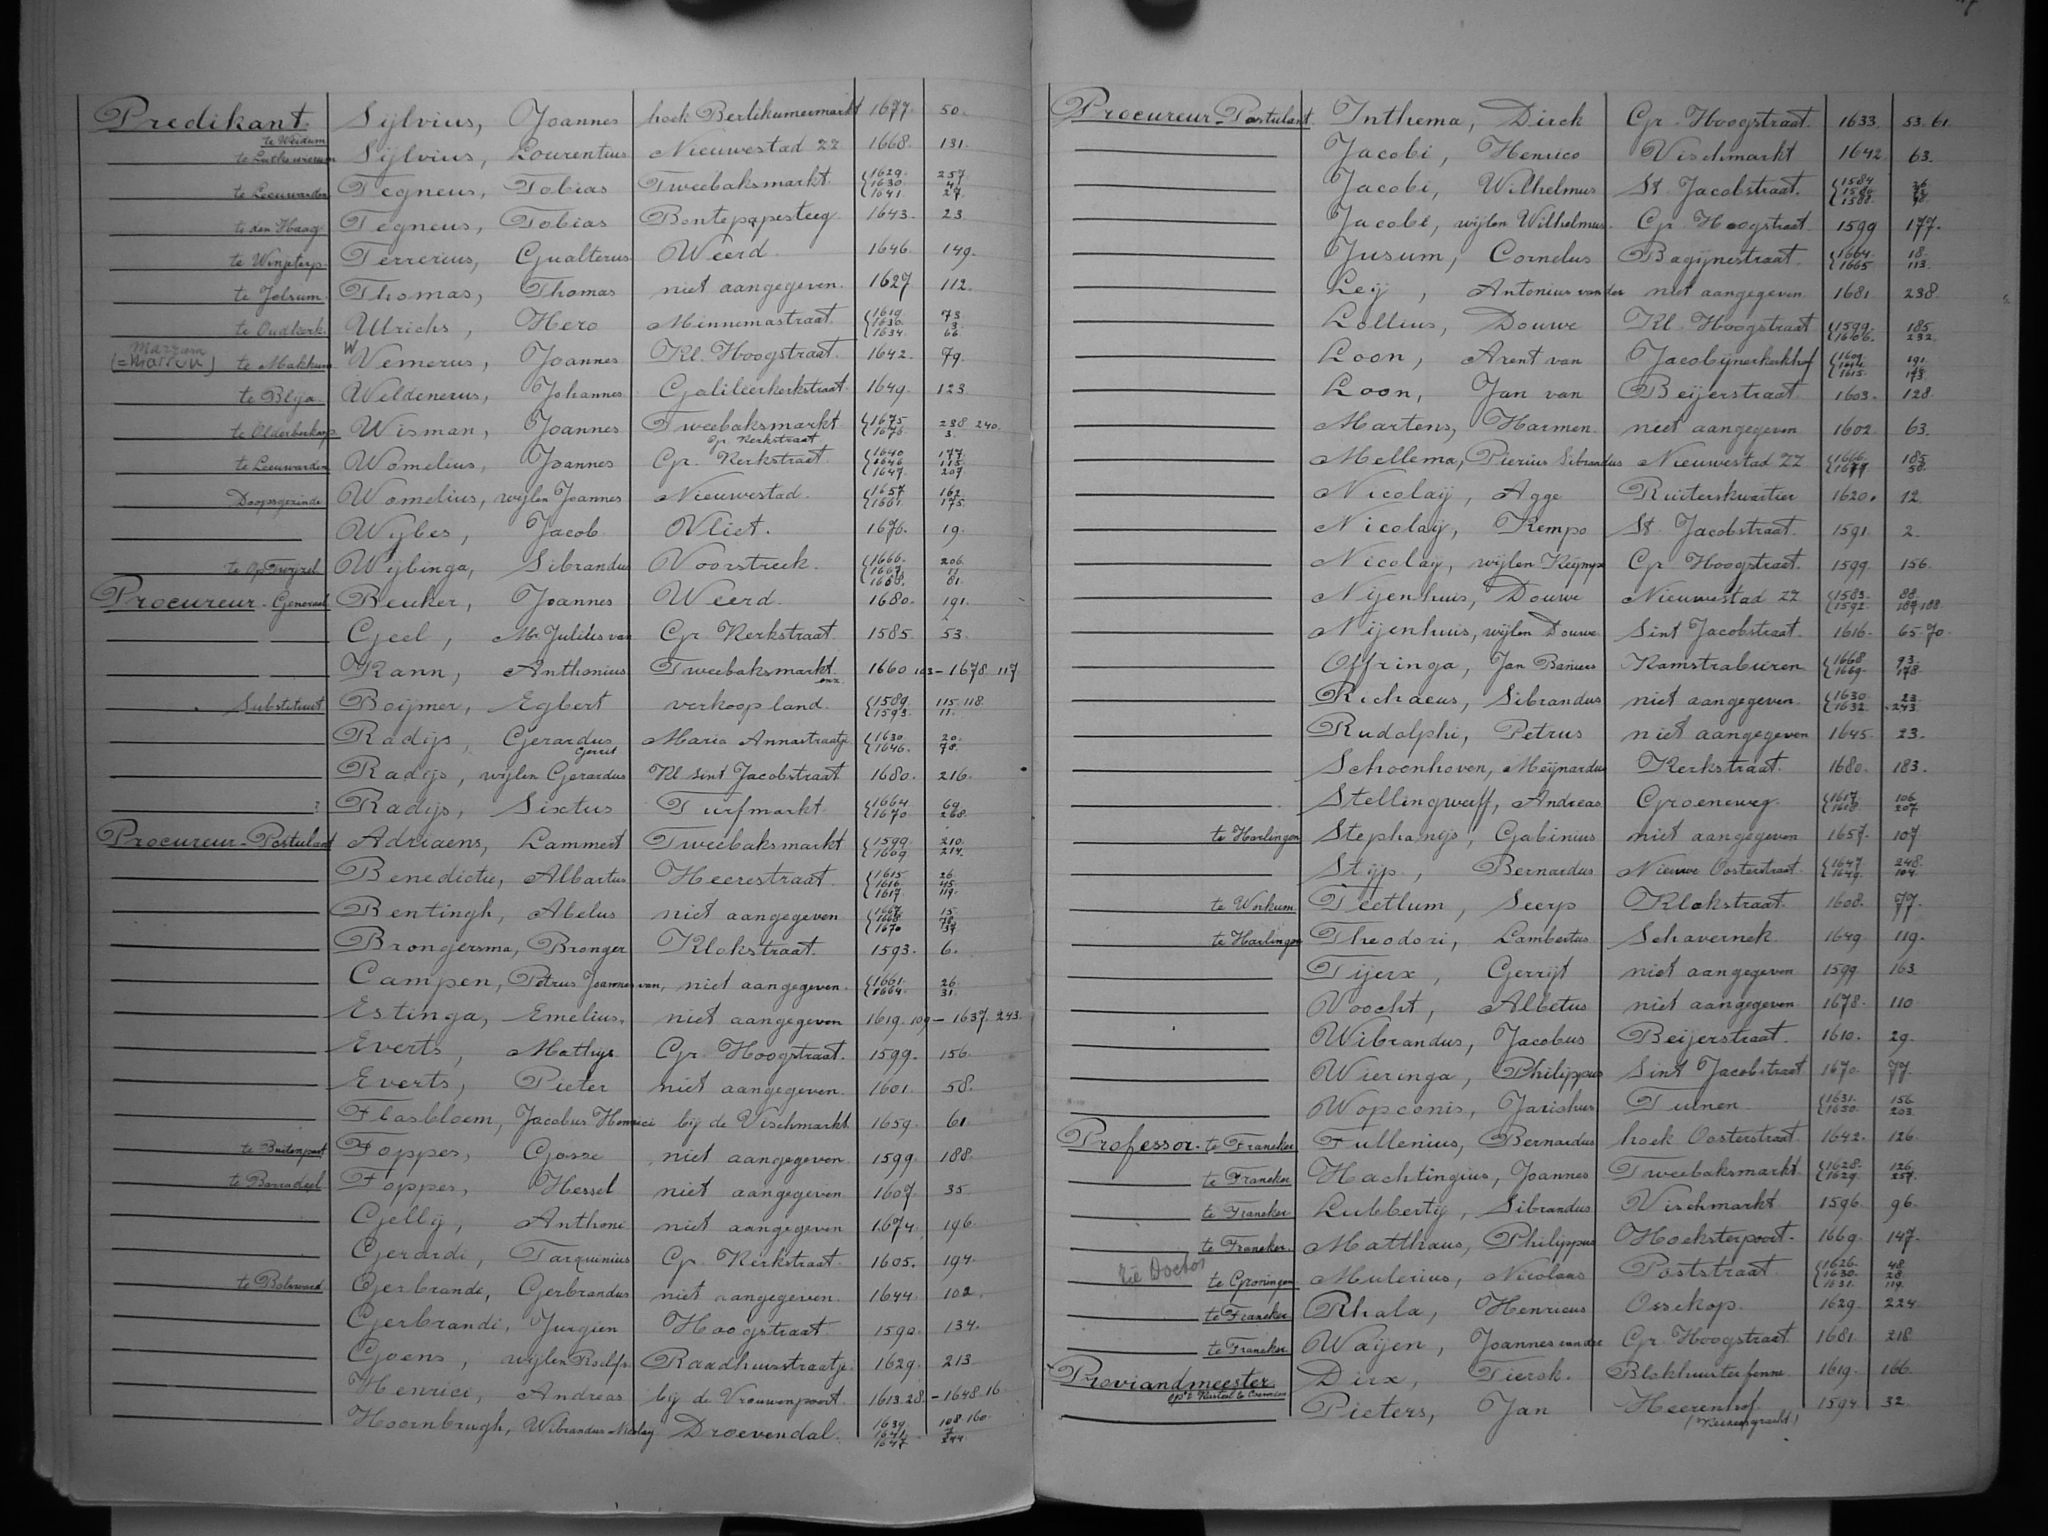 Predikant. Sijlvius, Joannes hoek Berlikumermarkt 1677 50.
te Weidum
Sijlvius, Lourentius Nieuwestad ZZ 1668. 131.
te Leeuwarden Tegneus, Tobias Tweebaksmarkt. 1629. 1630. 1641. 257. 41. 27.
te den Haag Tegneus, Tobias Bontepapesteeg. 1643. 23.
te Winsterp. Terrerius, Gualterus Weerd. 1646. 149.
te Jelsum. Thomas, Thomas niet aangegeven. 1627 112.
te Oudkerk. Ulrichs, Hero Minnemastraat. 1619. 1630. 1634. 73. 3. 66.
Marrum
(=Marren) te Makkum Wemerus, Joannes Kl. Hoogstraat. 1642. 79.
te Blija. Weldenerus, Johannes Galileërkerkstraat. 1649. 123.
te Olderberkoop. Wisman, Joannes Tweebaksmarkt 1675 1676. 238 240. 3.
Gr. Kerkstraat
te Leeuwarden Womelius, Joannes Gr. Kerkstraat. 1640 1646 1647. 177. 115. 207.
Doopsgezinde Womelius, wijlen Joannes Nieuwestad. 1657 1661. 162. 175.
Wijbes, Jacob Vliet. 1676. 19.
Wijbinga, Sibrandus Voorstreek. 1666. 1667. 1668. 206. 11. 81.
Procureur-Generaal Beuker, Joannes Weerd. 1680. 191.
Geel, Mr Julius van Gr. Kerkstraat. 1585. 53.
Kann, Anthonius Tweebaksmarkt enz. 1660 103 - 1678. 117
Substituut Boijmer, Egbert verkoop land. 1589. 1593. 115. 118. 11.
Radijs, Gerardus Maria Annastraatje 1630. 1646. 20. 78.
Gerrit
Radijs, wijlen Gerardus Kl. Sint Jacobstraat 1680. 216.
? Radijs, Sixtus Turfmarkt. 1664. 1670 69. 268.
Procureur-Postulant Adriaens, Lammert Tweebaksmarkt 1599. 1609 210. 214.
Benedicti, Albartus Heerestraat. 1615 1616. 1617. 26. 45. 119.
Bentingh, Abelus niet aangegeven 1667. 1668. 1670 15. 78. 37.
Brongersma, Bronger Klokstraat. 1593. 6.
Campen, Petrus Joannes van, niet aangegeven. 1661. 1664. 26. 31.
Estinga, Emelius. niet aangegeven 1619. 109 - 1637. 243.
Everts, Mathijs Gr. Hoogstraat. 1599. 156.
Everts, Pieter niet aangegeven. 1601. 58.
Flasbloem, Jacobus Henrici bij de Vischmarkt. 1659. 61.
te Buitenpost Foppes, Gosse niet aangegeven. 1599. 188.
te Barradeel Foppes, Hessel niet aangegeven. 1607. 35.
Gellij, Anthoni niet aangegeven 1674. 196.
Gerardi, Tarquinius Gr. Kerkstraat. 1605. 194.
te Bolsward. Gerbrandi, Gerbrandus niet aangegeven. 1644. 102.
Gerbrandi, Jurgien Hoogstraat. 1590. 134.
Goens, wijlen Roelfs. Raadhuisstraatje. 1629. 213.
Henrici, Andreas bij de Vrouwenpoort. 1613. 28. - 1648. 16.
Hoornbrugh, Wibrandus Nicolaij Droevendal. 1639. 1641. 1647 108. 160. 7. 244
Procureur-Postulant. Inthema, Dirck Gr. Hoogstraat. 1633. 53. 61.
Jacobi, Henrico Vischmarkt 1642. 63.
Jacobi, Wilhelmus St. Jacobstraat. 1584 1586 1588.
Jacobi, wijlen Wilhelmus. Gr. Hoogstraat. 1599 177.
Jusum, Cornelus Bagijnestraat. 1664. 1665 18. 113.
Leij, Antonius van der niet aangegeven. 1681. 238.
Lollius, Douwe Kl. Hoogstraat 1599. 1606. 185. 232.
Loon, Arent van Jacobijnerkerkhof 1615. 191. 173.
Loon, Jan van Beijerstraat. 1603. 128.
Martens, Harmen. niet aangegeven 1602. 63.
Mellema, Pierius Sibrandus Nieuwestad ZZ 1666. 1677 185. 50.
Nicolaij, Agge Ruiterskwartier 1620. 12.
Nicolaij, Kempo St. Jacobstraat. 1591. 2.
Nicolaij, wijlen Keijmpe Gr. Hoogstraat. 1599. 156.
Nijenhuis, Douwe Nieuwestad ZZ 1583. 1592. 88. 187. 188.
Nijenhuis, wijlen Douwe. Sint Jacobstraat. 1616. 65. 70.
Offringa, Jan Banius Kamstraburen 1668. 1669. 93. 178.
Richaeus, Sibrandus niet aangegeven 1630. 1632. 23. 243.
Rudolphi, Petrus niet aangegeven 1645. 23.
Schoonhoven, Meijnardus Kerkstraat. 1680. 183.
Stellingwerff, Andreas Groeneweg. 1617. 1618. 106. 207.
te Harlingen Stephanijs, Gabinius niet aangegeven 1657. 107
Stijp, Bernardus Nieuwe Oosterstraat. 1647. 1649. 248. 104.
te Workum. Teetlum, Seerp Klokstraat. 1608. 77.
te Harlingen Theodori, Lambertus Schavernek. 1649 119.
Tijerx, Gerrijt niet aangegeven 1599 163.
Voocht, Albetus niet aangegeven 1678. 110
Wibrandus, Jacobus Beijerstraat. 1610. 29.
Wieringa, Philippus Sint Jacobstraat 1670. 77.
Wopconis, Jarichus Tuinen. 1631. 1650. 156. 203.
Professor. te Franeker Fullenius, Bernardus hoek Oosterstraat. 1642. 126.
te Franeker Hachtingius, Joannes Tweebaksmarkt. 1628. 1629. 126. 257.
te Franeker Lubbertij, Sibrandus Vischmarkt. 1596. 96.
te Franeker Matthaus, Philippus Hoeksterpoort. 1669. 147.
zie Doctor
te Groningen Mulerius, Nicolaas Poststraat. 1626. 1630. 1631. 48. 28. 119.
te Franeker Rhala, Henricus Ossekop. 1629. 224.
te Franeker Waijen, Joannes van der Gr. Hoogstraat. 1681. 218.
Proviandmeester Dirx, Tierck. Blokhuisterfenne. 1619. 166.
Pieters, Jan Heerenhof. 1594. 32.
(Keizersgracht)